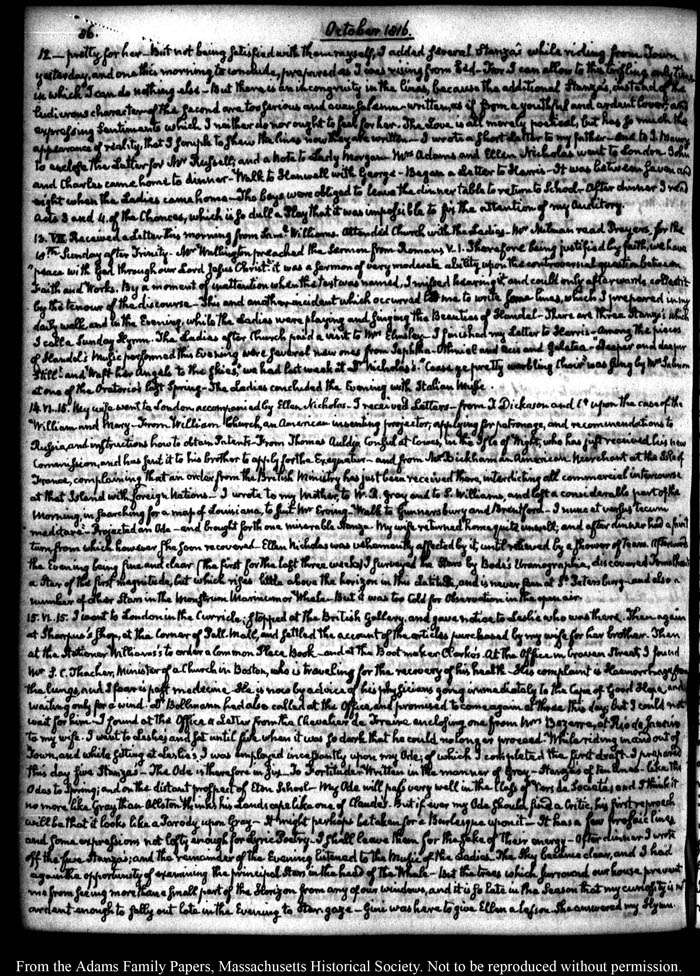 86.
October 1816.
12.— pretty for her— But not being satisfied with them myself, I added several Stanza's while riding from Town
yesterday, and one this morning to conclude, prepared as I was rising from Bed— For I can allow to this trifling only time
in which I can do nothing else— But there is an incongruity in the lines, because the additional Stanza's, instead of the
ludicrous character of the second are too serious and even solemn— written, as if from a youthful and ardent lover, and
expressing Sentiments which I neither do nor ought to feel for her— The Love is all merely poetical, but has so much the
appearance of reality, that I scruple to shew the lines now they are written— I wrote a short Letter to my father— and to J. Maury
to enclose the Letter for Mr Russell; and a Note to Lady Morgan— Mrs Adams and Ellen Nicholas went to London. John
and Charles came home to dinner— Walk to Hanwell with George— Began a Letter to Harris— It was between seven and
eight when the Ladies came home— The boys were obliged to leave the dinner table to return to School— After dinner I read
Acts 3 and 4. of the Chances, which is so dull a Play that it was impossible to fix the attention of my Auditory.
13. VII. Received a Letter this morning from Saml. Williams. Attended Church with the Ladies— Mr Milman read Prayers, for the
18th Sunday after Trinity— Mr Wallington preached the Sermon from Romans V. 1. Therefore being justified by faith, we have
"peace with God through our Lord Jesus Christ." it was a Sermon of very moderate ability upon the controversial question between
Faith and Works. By a moment of inattention when the Text was named, I missed hearing it, and could only afterwards collect it
by the tenour of the discourse— This and another incident which occurred led me to write some lines, which I prepared in my
daily walk, and in the Evening, while the Ladies were playing and singing the Beauties of Handel— There are three Stanza's which
I call a Sunday Hymn. The Ladies after Church paid a visit to Mrs Elmsley— I finished my Letter to Harris— Among the pieces
of Handel's Music performed this Evening were several new ones from Jephtha— Othniel and Acis and Galatea— "Deeper and deeper
still" and "Waft her Angels to the skies," we had last week at Dr Nicholas's. "Cease ye pretty warbling Choir" was sung by Mrs Salmon
at one of the Oratorio's last Spring— The Ladies concluded the Evening with Italian Music.
14. VI. 15. My wife went to London accompanied by Ellen Nicholas— I received Letters— from T. Dickason and Co upon the case of the
William and Mary— From William Church, an American inventing projector, applying for patronage, and recommendations to
Russia, and instructions how to obtain Patents— From Thomas Auldjo Consul at Cowes, in the Isle of Wight, who has just received his new
Commission, and has sent it to his brother to apply for the Exequatur— and from Mr Dickman an American Merchant at the Isle of
France, complaining that an order from the British Ministry has just been received there, interdicting all commercial intercourse
at that Island with foreign Nations— I wrote to my Mother, to W. R. Gray and to S. Williams, and lost a considerable part of the
Morning, in searching for a map of Louisiana, to suit Mr Erving— Walk to Gunnersbury and Brentford— I nunc et versus tecum
meditare— Projected an Ode— and brought forth one miserable stanza. My wife returned home quite unwell; and after dinner had a faint
turn from which however she soon recovered— Ellen Nicholas was vehemently affected by it, until relieved by a shower of tears. Afterwards
the Evening being fine and clear (the first for the last three weeks) I surveyed the Stars by Bode's Uranographia, discovered Fomalhaut
a star of the first magnitude, but which rises little above the horizon in this Latitude, and is never seen at St Petersburg— and also a
number of other Stars in the Monstrum Marinum or Whale— But it was too cold for Observation in the open air.
15. VI. 15. I went to London in the Curricle; stopped at the British Gallery, and gave notice to Leslie who was there. Then again
at Sharpus's Shop, at the Corner of Pall-Mall, and settled the account of the articles purchased by my wife for her brother. Then
at the Stationer Williams's to order a Common Place Book— and at the Bootmaker Clark's. At the Office in Craven Street I found
Mr S. C. Thacher, Minister of a Church in Boston, who is traveling for the recovery of his health— His complaint is Haemorrhage from
the lungs, and I fear is past medicine— He is now by advice of his physicians going immediately to the Cape of Good Hope, and
waiting only for a wind— Dr Bollmann had also called at the Office, and promised to come again at three this day; but I could not
wait for him— I found at the Office a Letter from the Chevalier de Freire enclosing one from Mrs Bezerra, at Rio de Janeiro
to my wife. I went to Leslie's and sat until five when it was so dark that he could no longer proceed— While riding in and out of
Town, and while sitting at Leslie's, I was employed incessantly upon my Ode; of which I completed the first draft— I prepared
this day five Stanzas— The Ode is therefore in six— To Fortitude— Written in the manner of Gray— Stanzas of ten lines— like the
Odes to Spring; and on the distant prospect of Eton School— My Ode will pass very well in the class of Vers de Societé and I think it
no more like Gray than Allston thinks his Landscape like one of Claude's— But if ever my Ode should find a Critic, his first reproach
will be that it looks like a Parody upon Gray— It might perhaps be taken for a Burlesque upon it— It has a few prosaic lines
and some expressions not lofty enough for Lyric Poetry— I shall leave them for the sake of their energy— After dinner I wrote
off the five Stanzas; and the remainder of the Evening listened to the Music of the Ladies. The Sky became clear, and I had
again the opportunity of examining the principal Stars in the head of the Whale— But the trees which surround our house prevent
me from seeing more than a small part of the Horizon from any of our windows, and it is so late in the Season that my curiosity is not
ardent enough to sally out late in the Evening to Star-gaze— Gini was here to give Ellen a lesson— She answered my Hymn.
From the Adams Family Papers, Massachusetts Historical Society. Not to be reproduced without permission.